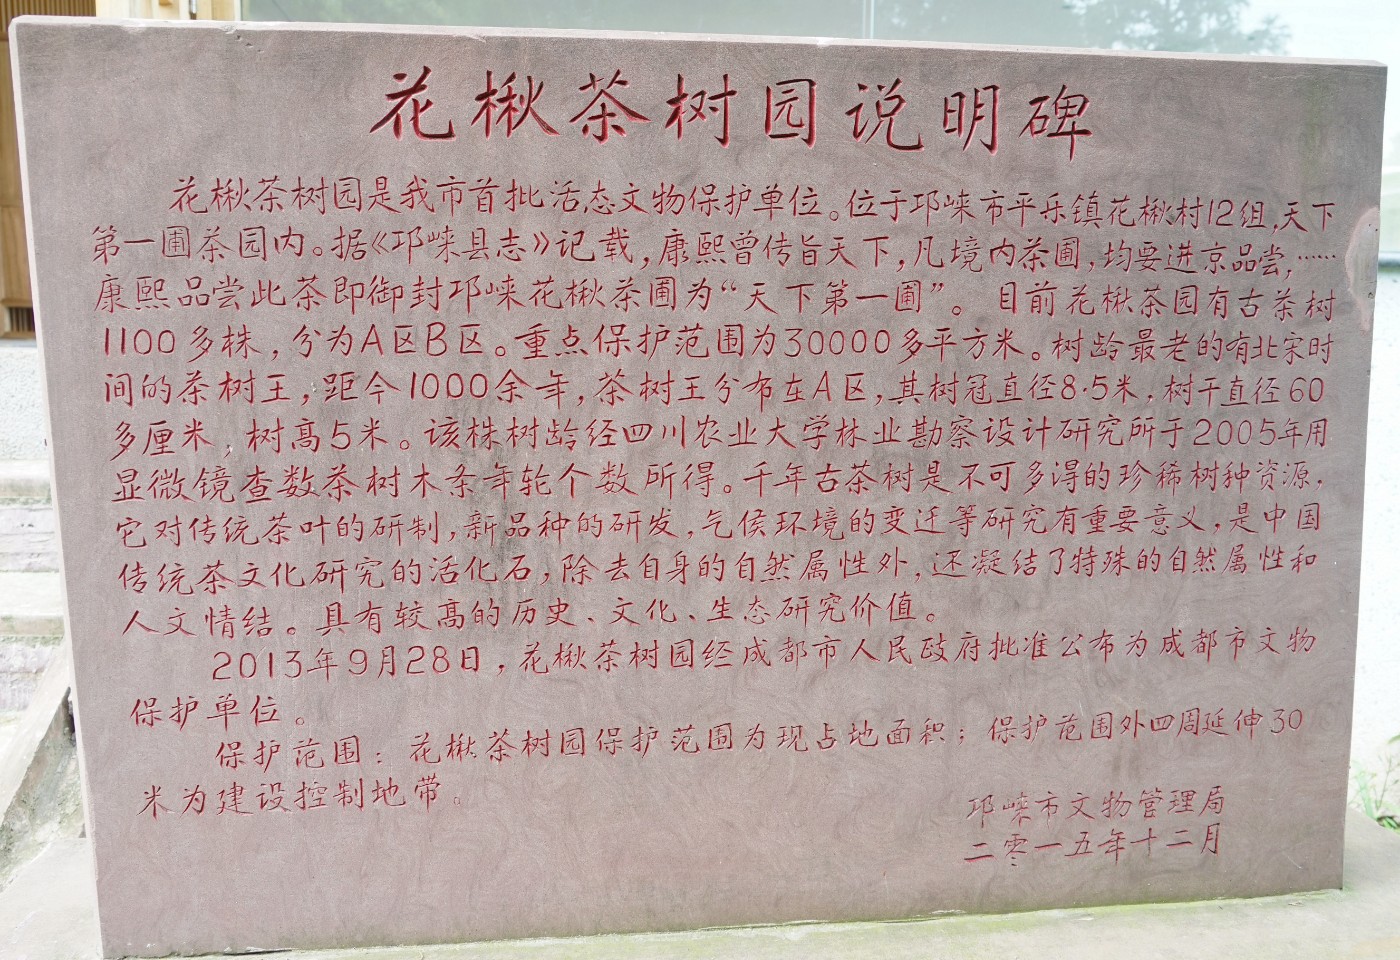 花楸茶树园说明碑
花楸茶树园是我市首批活态文物保护单位。位于邛崃市平乐镇花楸村12组,天下
第一圃茶园内。据《邛崃县志》记载,康熙曾传旨天下,凡境内茶圃,均要进京品尝,……
康熙品尝此茶即御封邛崃花楸茶圃为“天下第一圃”。目前花楸茶园有古茶树
1100多株,分为A区B区。重点保护范围为30000多平方米。树龄最老的有北宋时
间的茶树王,距今1000余年,茶树王分布在A区,其树冠直径8.5米,树干直径60
多厘米,树高5米。该株树龄经四川农业大学林业勘察设计研究所于2005年用
显微镜查数茶树木条年轮个数所得。千年古茶树是不可多得的珍稀树种资源,
它对传统茶叶的研制,新品种的研发,气侯环境的变迁等研究有重要意义,是中国
传统茶文化研究的活化石,除去自身的自然属性外,还凝结了特殊的自然属性和
人文情结。具有较高的历史、文化、生态研究价值。
2013年9月28日,花楸茶树园经成都市人民政府批准公布为成都市文物
保护单位。
保护范围:花楸茶树园保护范围为现占地面积;保护范围外四周延伸30
米为建设控制地带。
邛崃市文物管理局
二零一五年十二月